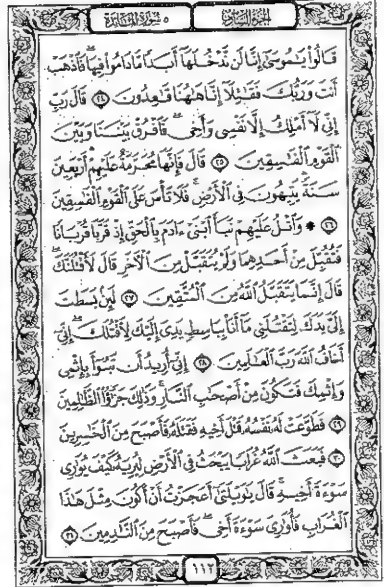 الجزء السادس ٥ سورة المائدة
قَالُوا۟ يَٰمُوسَىٰٓ إِنَّا لَن نَّدْخُلَهَآ أَبَدًا مَّا دَامُوا۟ فِيهَا فَٱذْهَبْ
أَنتَ وَرَبُّكَ فَقَٰتِلَآ إِنَّا هَٰهُنَا قَٰعِدُونَ ٢٤ قَالَ رَبِّ
إِنِّى لَآ أَمْلِكُ إِلَّا نَفْسِى وَأَخِى فَٱفْرُقْ بَيْنَنَا وَبَيْنَ
ٱلْقَوْمِ ٱلْفَٰسِقِينَ ٢٥ قَالَ فَإِنَّهَا مُحَرَّمَةٌ عَلَيْهِمْ أَرْبَعِينَ
سَنَةً يَتِيهُونَ فِى ٱلْأَرْضِ فَلَا تَأْسَ عَلَى ٱلْقَوْمِ ٱلْفَٰسِقِينَ
٢٦ وَٱتْلُ عَلَيْهِمْ نَبَأَ ٱبْنَىْ ءَادَمَ بِٱلْحَقِّ إِذْ قَرَّبَا قُرْبَانًا
فَتُقُبِّلَ مِنْ أَحَدِهِمَا وَلَمْ يُتَقَبَّلْ مِنَ ٱلْءَاخَرِ قَالَ لَأَقْتُلَنَّكَ
قَالَ إِنَّمَا يَتَقَبَّلُ ٱللَّهُ مِنَ ٱلْمُتَّقِينَ ٢٧ لَئِنۢ بَسَطتَ
إِلَىَّ يَدَكَ لِتَقْتُلَنِى مَآ أَنَا۠ بِبَاسِطٍ يَدِىَ إِلَيْكَ لِأَقْتُلَكَ إِنِّىٓ
أَخَافُ ٱللَّهَ رَبَّ ٱلْعَٰلَمِينَ ٢٨ إِنِّىٓ أُرِيدُ أَن تَبُوٓأَ بِإِثْمِى
وَإِثْمِكَ فَتَكُونَ مِنْ أَصْحَٰبِ ٱلنَّارِ وَذَٰلِكَ جَزَٰٓؤُا۟ ٱلظَّٰلِمِينَ
٢٩ فَطَوَّعَتْ لَهُۥ نَفْسُهُۥ قَتْلَ أَخِيهِ فَقَتَلَهُۥ فَأَصْبَحَ مِنَ ٱلْخَٰسِرِينَ
٣٠ فَبَعَثَ ٱللَّهُ غُرَابًا يَبْحَثُ فِى ٱلْأَرْضِ لِيُرِيَهُۥ كَيْفَ يُوَٰرِى
سَوْءَةَ أَخِيهِ قَالَ يَٰوَيْلَتَىٰٓ أَعَجَزْتُ أَنْ أَكُونَ مِثْلَ هَٰذَا
ٱلْغُرَابِ فَأُوَٰرِىَ سَوْءَةَ أَخِى فَأَصْبَحَ مِنَ ٱلنَّٰدِمِينَ ٣١
١١٢